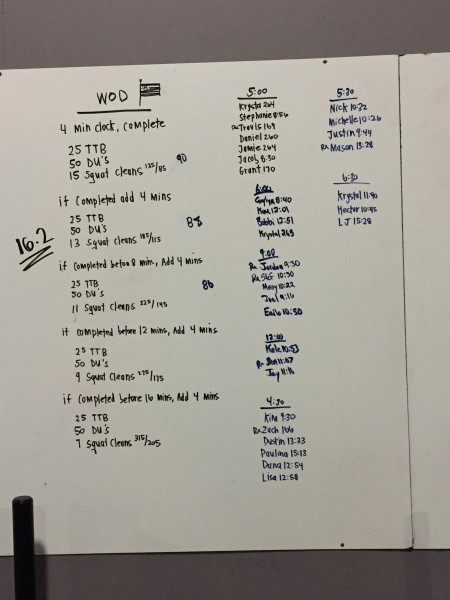 WOD
4 min clock, complete
25 TTB
50 DU's
15 Squat Cleans 125/85
90
if completed add 4 mins
25 TTB
50 DU's
13 Squat Cleans 185/115
88
16.2
if completed before 8 mins, Add 4 mins
25 TTB
50 DU's
11 Squat Cleans 225/145
86
if completed before 12 mins, Add 4 mins
25 TTB
50 DU's
9 Squat Cleans 275/175
if completed before 16 mins, Add 4 mins
25 TTB
50 DU's
7 Squat Cleans 315/205
5:00
Krysta 264
Stephanie 8:56
Rx Travis 169
Daniel 260
Jamie 264
Jacob 8:30
Grant 170
6:00
8:40
12:01
Bobbi 12:51
Krystal 265
9:00
Rx Jordan 9:30
Rx 10:30
Missy 10:22
9:16
10:50
12:00
Kole 10:53
Rx 11:57
Jay 11:16
4:30
Kim 9:30
Rx Zach 166
Dustin 13:23
Paulina 15:13
Dana 12:54
Lisa 12:58
5:30
Nick 10:32
Michelle 10:26
Justin 9:44
Rx Mason 13:28
6:30
Krystal 11:40
Hector 10:45
LJ 15:28